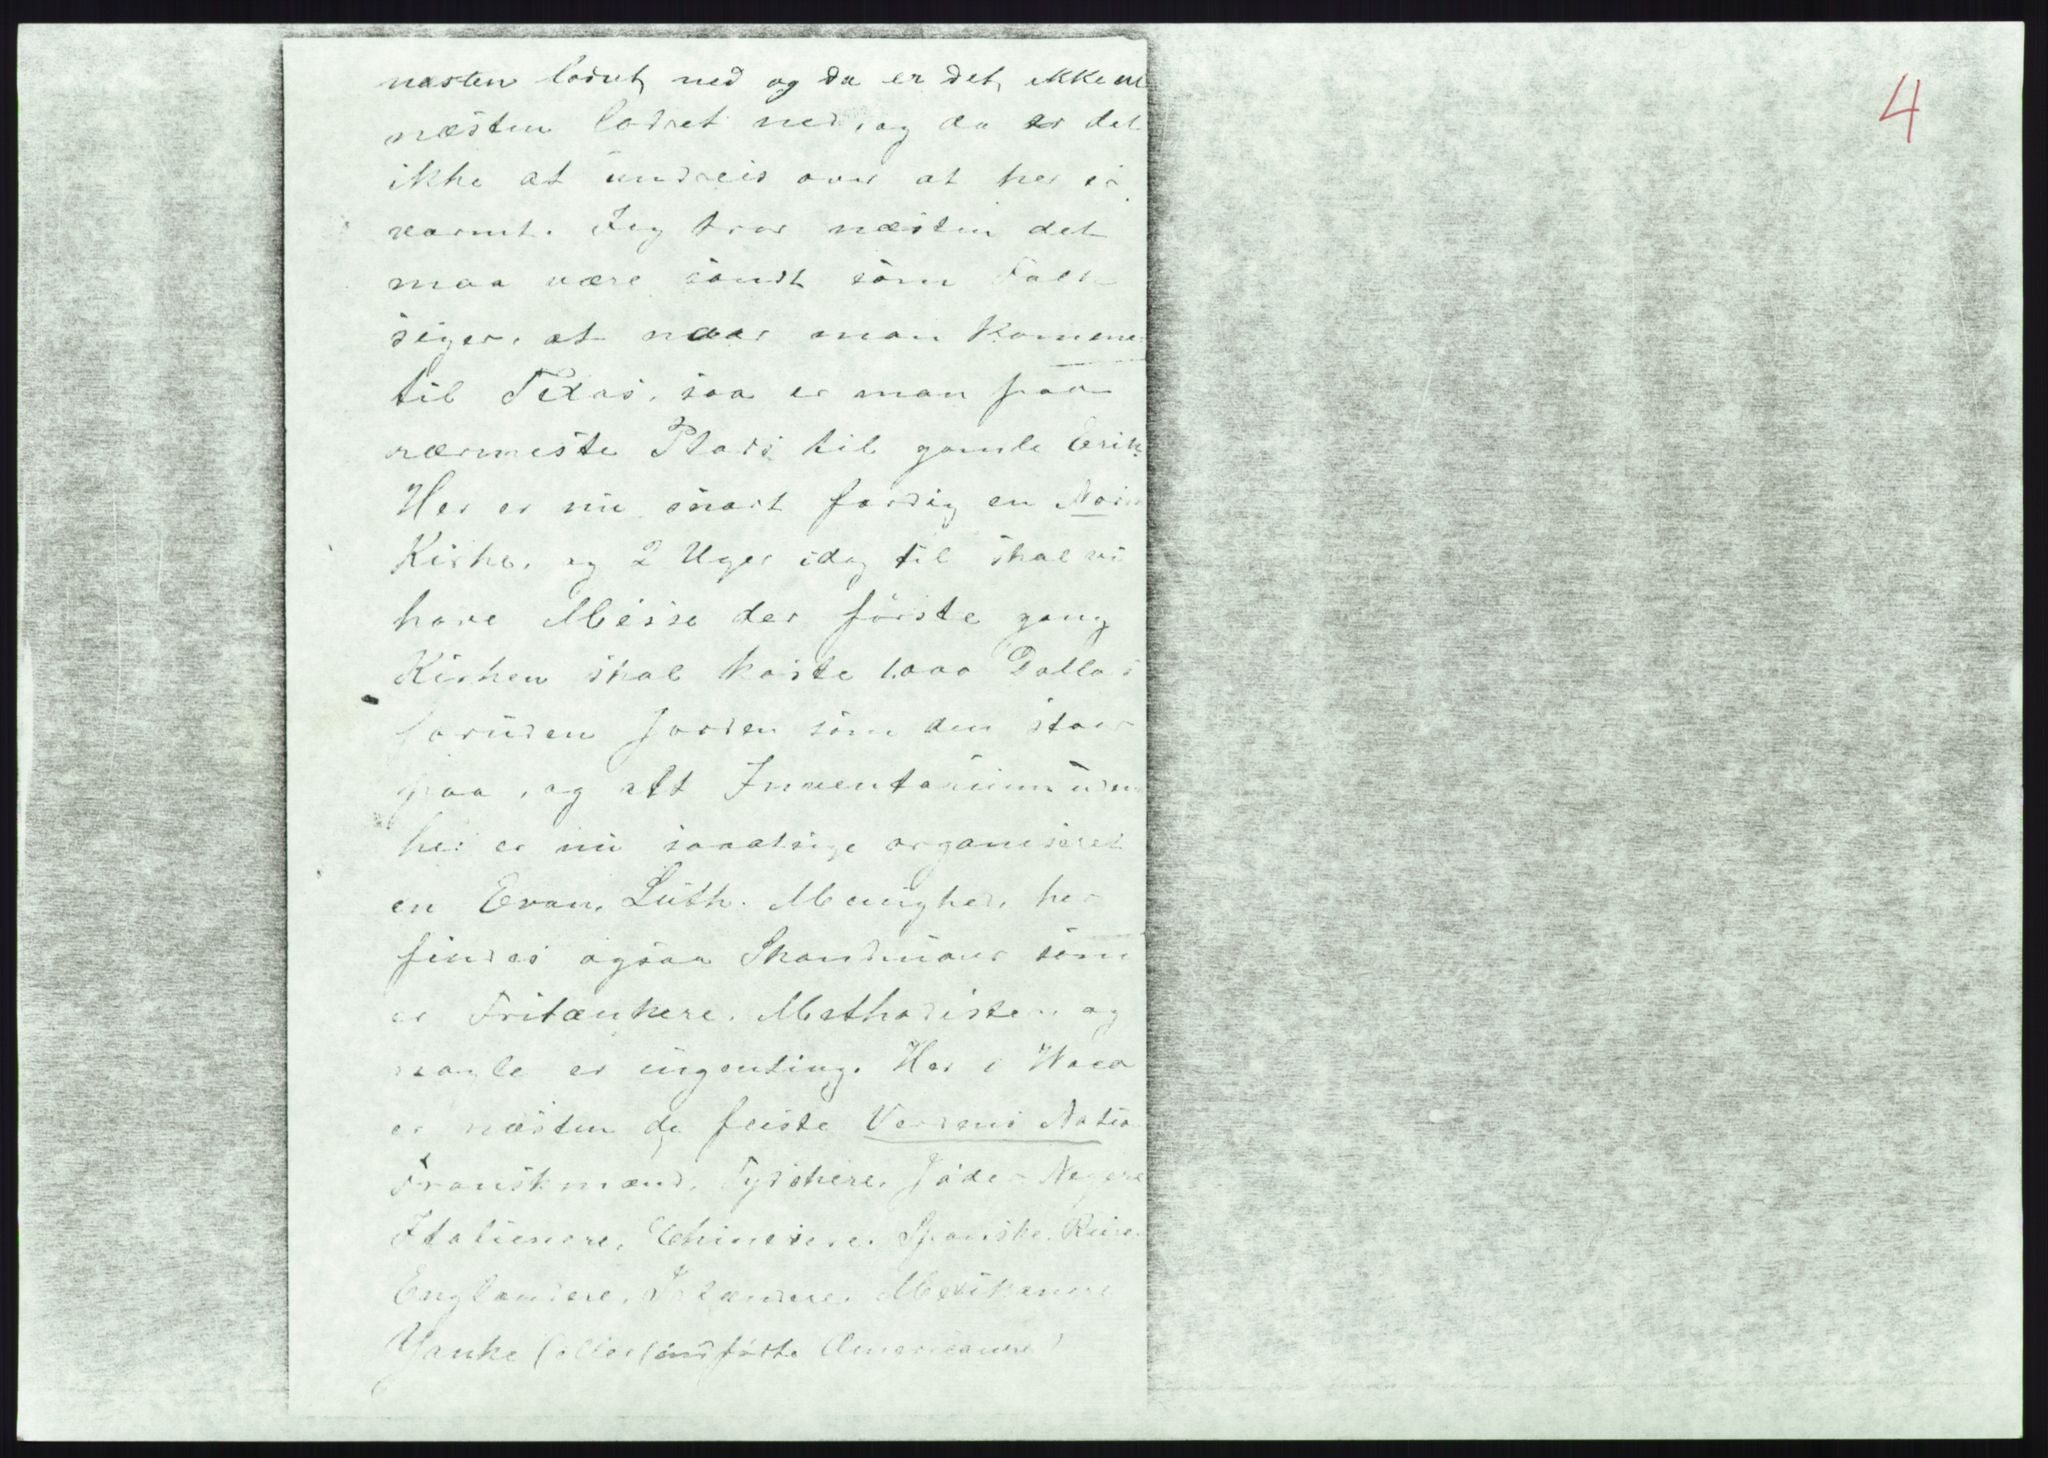 4
næsten lodret ned og da er det ikke
næsten lodret ned, og da er det
ikke at undreis over at her er
varmt. Jeg tror næsten det
maa være sandt som Folk
siger, at naar man kommer
til Texas, saa er man paa
nærmeste Plads til gamle Erik.
Her er nu snart færdig en Norsk
Kirke, og 2 Uger idag til skal vi
have Messe der første gang
Kirken skal koste 1.000 Dollars
foruden Jorden som den staar
paa, og alt Inventarium uden
her er nu saaatsige organiseret
en Evan. Luth. Menighed, her
findes ogsaa Skandinaver som
er Fritænkere, Methodister og
nogle er ingenting. Her i Waco
er næsten de fleste Verdens Natio
Franskmænd, Tydskere, Jøder Negere
Italienere, Chinesere, Spanske, Russe
Englændere, Irlændere, Mexikanere
Yanke (eller indfødte Americanere)